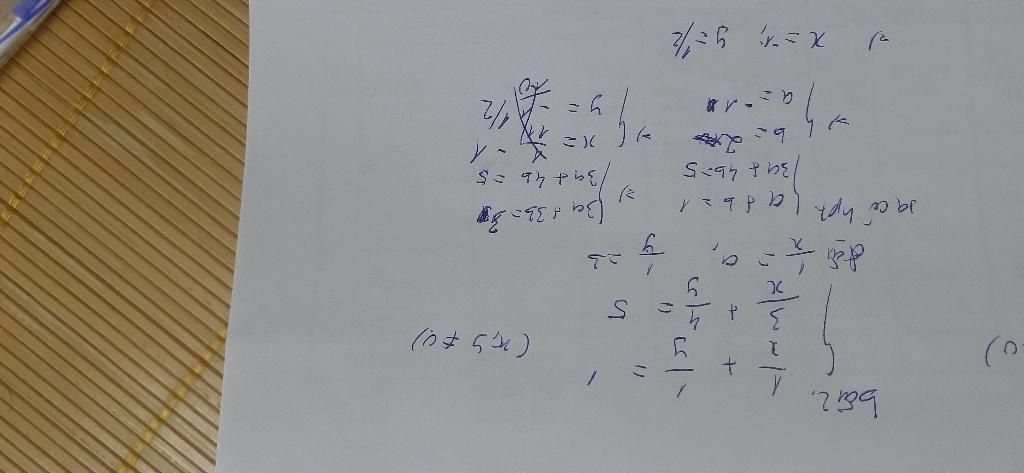 Bài 2.
1/x + 1/y = 1 (x, y ≠ 0)
3/x + 4/y = 5
Đặt 1/x = a, 1/y = b
ta có hpt { a + b = 1 => { 3a + 3b = 3
3a + 4b = 5 3a + 4b = 5
=> { b = 2 => { x = -1
a = -1 y = 1/2
=> x = -1, y = 1/2